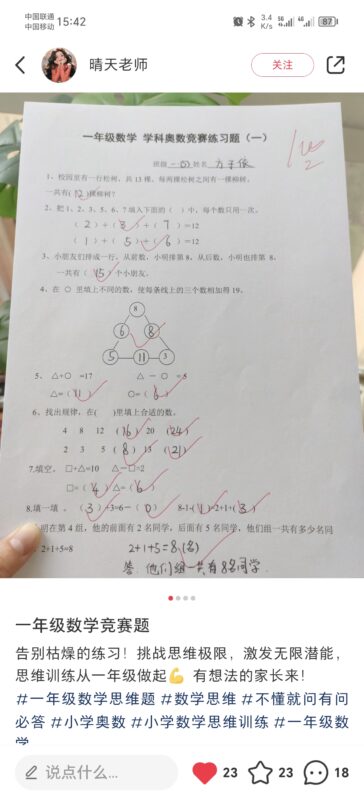 中国联通
中国移动 15:42
3.4 K/s 5G 4G 87
晴天老师
关注
一年级数学 学科奥数竞赛练习题（一）
班级 一(1) 姓名
1、校园里有一行松树，共 13 棵，每两棵松树之间有一棵柳树，
一共有( 12 )棵柳树？
2、把 1、2、3、5、6、7 填入下面的（ ）中，每个数只用一次。
（ 2 ）+（ 3 ）+（ 7 ）=12
（ 1 ）+（ 5 ）+（ 6 ）=12
3、小朋友们排成一行，从前数，小明排第 8，从后数，小明也排第 8，
一共有（ 15 ）个小朋友。
4、在 ○ 里填上不同的数，使每条线上的三个数相加得 19。
8
6 8
5 11 3
5、 △+○ =17 △ － ○ =5
△=（ 11 ） ○=（ 6 ）
6、找出规律，在( )里填上合适的数。
4 8 12 ( 16 ) 20 ( 24 )
2 3 5 ( 8 ) 13 ( 21 )
7.填空。 □+△=10 △－□=2
□=（ 4 ）△=（ 6 ）
8.填一填 。（ 3 ）+3=6－（ 0 ） 8-1-( )=2+1+( 3 )
明在第 4 组，他的前面有 2 名同学，后面有 5 名同学，他们组一共有多少名同
2+1+5=8 2+1+5=8(名)
答：他们组一共有8名同学.
一年级数学竞赛题
告别枯燥的练习！挑战思维极限，激发无限潜能，
思维训练从一年级做起💪 有想法的家长来！
#一年级数学思维题 #数学思维 #不懂就问有问
必答 #小学奥数 #小学数学思维训练 #一年级数
学
说点什么... 23 23 18